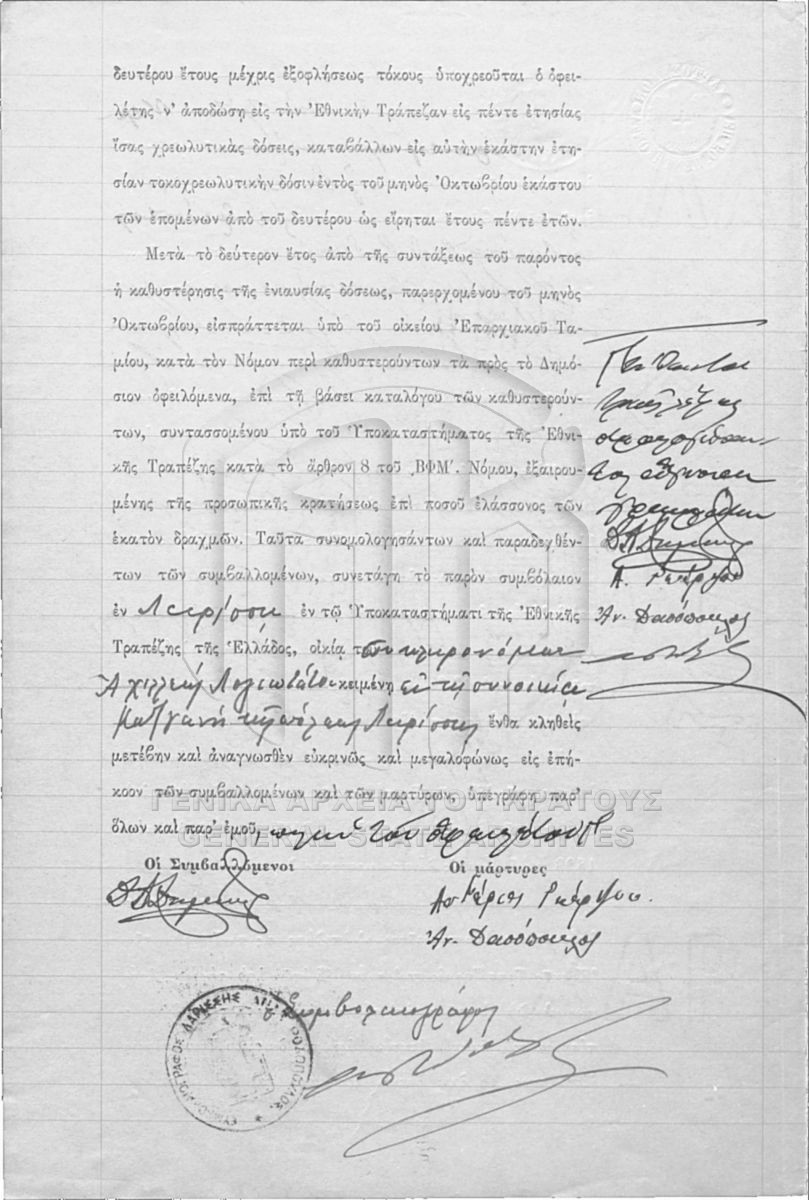 δευτέρου ἔτους μέχρις ἐξοφλήσεως τόκους ὑποχρεοῦται ὁ ὀφει-
λέτης ν' ἀποδώσῃ εἰς τὴν Ἐθνικὴν Τράπεζαν εἰς πέντε ἐτησίας
ἴσας χρεωλυτικὰς δόσεις, καταβάλλων εἰς αὐτὴν ἑκάστην ἐτη-
σίαν τοκοχρεωλυτικὴν δόσιν ἐντὸς τοῦ μηνὸς Ὀκτωβρίου ἑκάστου
τῶν ἑπομένων ἀπὸ τοῦ δευτέρου ὡς εἴρηται ἔτους πέντε ἐτῶν.
Μετὰ τὸ δεύτερον ἔτος ἀπὸ τῆς συντάξεως τοῦ παρόντος
ἡ καθυστέρησις τῆς ἐνιαυσίας δόσεως, παρερχομένου τοῦ μηνὸς
Ὀκτωβρίου, εἰσπράττεται ὑπὸ τοῦ οἰκείου Ἐπαρχιακοῦ Τα-
μίου, κατὰ τὸν Νόμον περὶ καθυστερούντων τὰ πρὸς τὸ Δημό-
σιον ὀφειλόμενα, ἐπὶ τῇ βάσει καταλόγου τῶν καθυστερούν-
των, συντασσομένου ὑπὸ τοῦ Ὑποκαταστήματος τῆς Ἐθνι-
κῆς Τραπέζης κατὰ τὸ ἄρθρον 8 τοῦ ͵ΒΦΜ′. Νόμου, ἐξαιρου-
μένης τῆς προσωπικῆς κρατήσεως ἐπὶ ποσοῦ ἐλάσσονος τῶν
ἑκατὸν δραχμῶν. Ταῦτα συνομολογησάντων καὶ παραδεχθέν-
των τῶν συμβαλλομένων, συνετάγη τὸ παρὸν συμβόλαιον
ἐν Λαρίσσῃ ἐν τῷ Ὑποκαταστήματι τῆς Ἐθνικῆς
Τραπέζης τῆς Ἑλλάδος, οἰκίᾳ τῶν κληρονόμων
Ἀχιλλέως Λογιωτάτου κειμένῃ ἐν τῇ συνοικίᾳ
τῆς πόλεως Λαρίσσης ἔνθα κληθεὶς
μετέβην καὶ ἀναγνωσθὲν εὐκρινῶς καὶ μεγαλοφώνως εἰς ἐπή-
κοον τῶν συμβαλλομένων καὶ τῶν μαρτύρων, ὑπεγράφη παρ'
ὅλων καὶ παρ' ἐμοῦ, πλὴν τοῦ
ΓΕΝΙΚΑ ΑΡΧΕΙΑ ΤΟΥ ΚΡΑΤΟΥΣ
GENERAL STATE ARCHIVES
Οἱ Συμβαλλόμενοι
Οἱ μάρτυρες
Ἀν. Δασόπουλος
Ἀν. Δασόπουλος
Ὁ Συμβολαιογράφος
ΣΥΜΒΟΛΑΙΟΓΡΑΦΟΣ ΛΑΡΙΣΣΗΣ